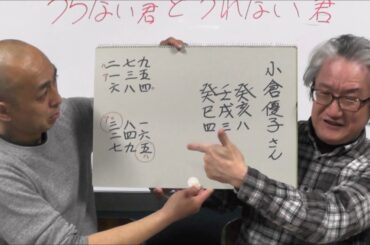 うらない君とうれない君
小倉優子さん
癸亥八
壬戌三
癸巳四
九五四
七三八
二一六
一六五
八四九
三二七